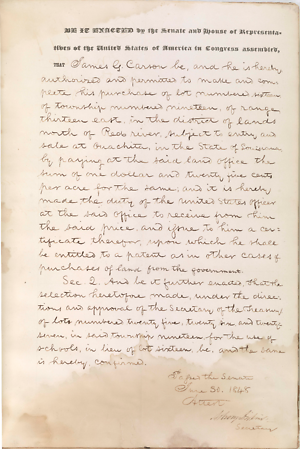 BE IT ENACTED by the Senate and House of Representa-
tives of the United States of America in Congress assembled,
THAT James G. Carson be, and he is hereby
authorized and permitted to make and com-
plete his purchase of lot numbered sixteen
of township numbered nineteen, of range
thirteen east, in the district of lands
north of Red river, subject to entry and
sale at Ouachita, in the State of Louisiana,
by paying at the said land office the
sum of one dollar and twenty five cents
per acre for the same, and it is hereby
made the duty of the United States officer
at the said office to receive from him
the said price, and issue to him a cer-
tificate therefor, upon which he shall
be entitled to a patent as in other cases of
purchases of land from the government.
Sec. 2. And be it further enacted, that the
selection heretofore made, under the direc-
tion and approval of the Secretary of the Treasury
of lots numbered twenty five, twenty six and twenty
seven, in said township nineteen for the use of
schools, in lieu of lot sixteen, be, and the same
is hereby confirmed.
the Senate
June 30. 1848
Attest
Secretary